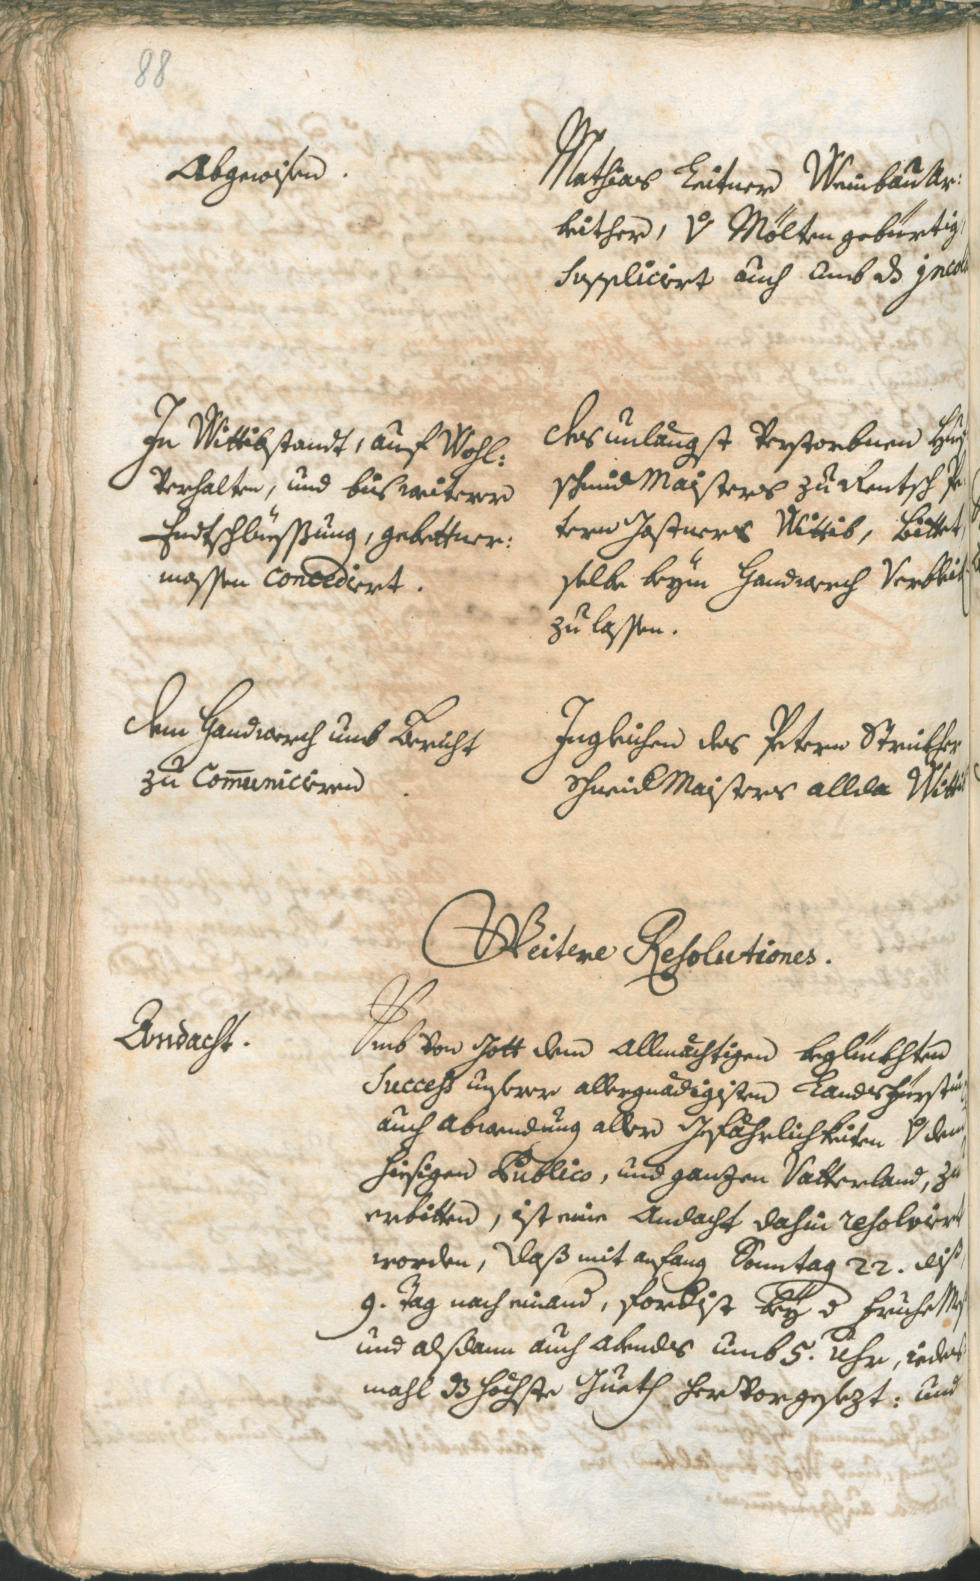 88
Abgewisen.
Mathias Leitner Weinbau Ar:
beither, V Mölten gebürtig,
Suppliciert auch umb ds jncol
In Wittibstandt, auf Wohl:
verhalten, und bis weiterer
Endtschlüessung, gebettner:
massen concediert.
des unlängst verstorbnen Hue
schmid Maisters zu Rentsch Pe
tern Gastners Wittib, bittet
selbe beym Handwerch
zu lassen.
dem Handwerch umb Bericht
zu Com̄unicieren
Ingleichen des Petern
Schmid Maisters allda Witti
Weitere Resolutiones.
Andacht.
Umb von Gott dem Allmächtigen beglückhten
Success unserer allergnädigisten Landsfürstin
auch Abwendung aller Gefährlichkeiten V dem
hiesigen Publico, und ganzen Vatterland, zu
erbitten, ist eine Andacht dahin resolviert
worden, daß mit anfang Sonntag 22. diß
9. Tag nach einand, fordist bey d fruhe Mes
und alsdann auch Abends umb 5. Uhr, iedes
mahl ds höchste Gueth hervorgesezt: und